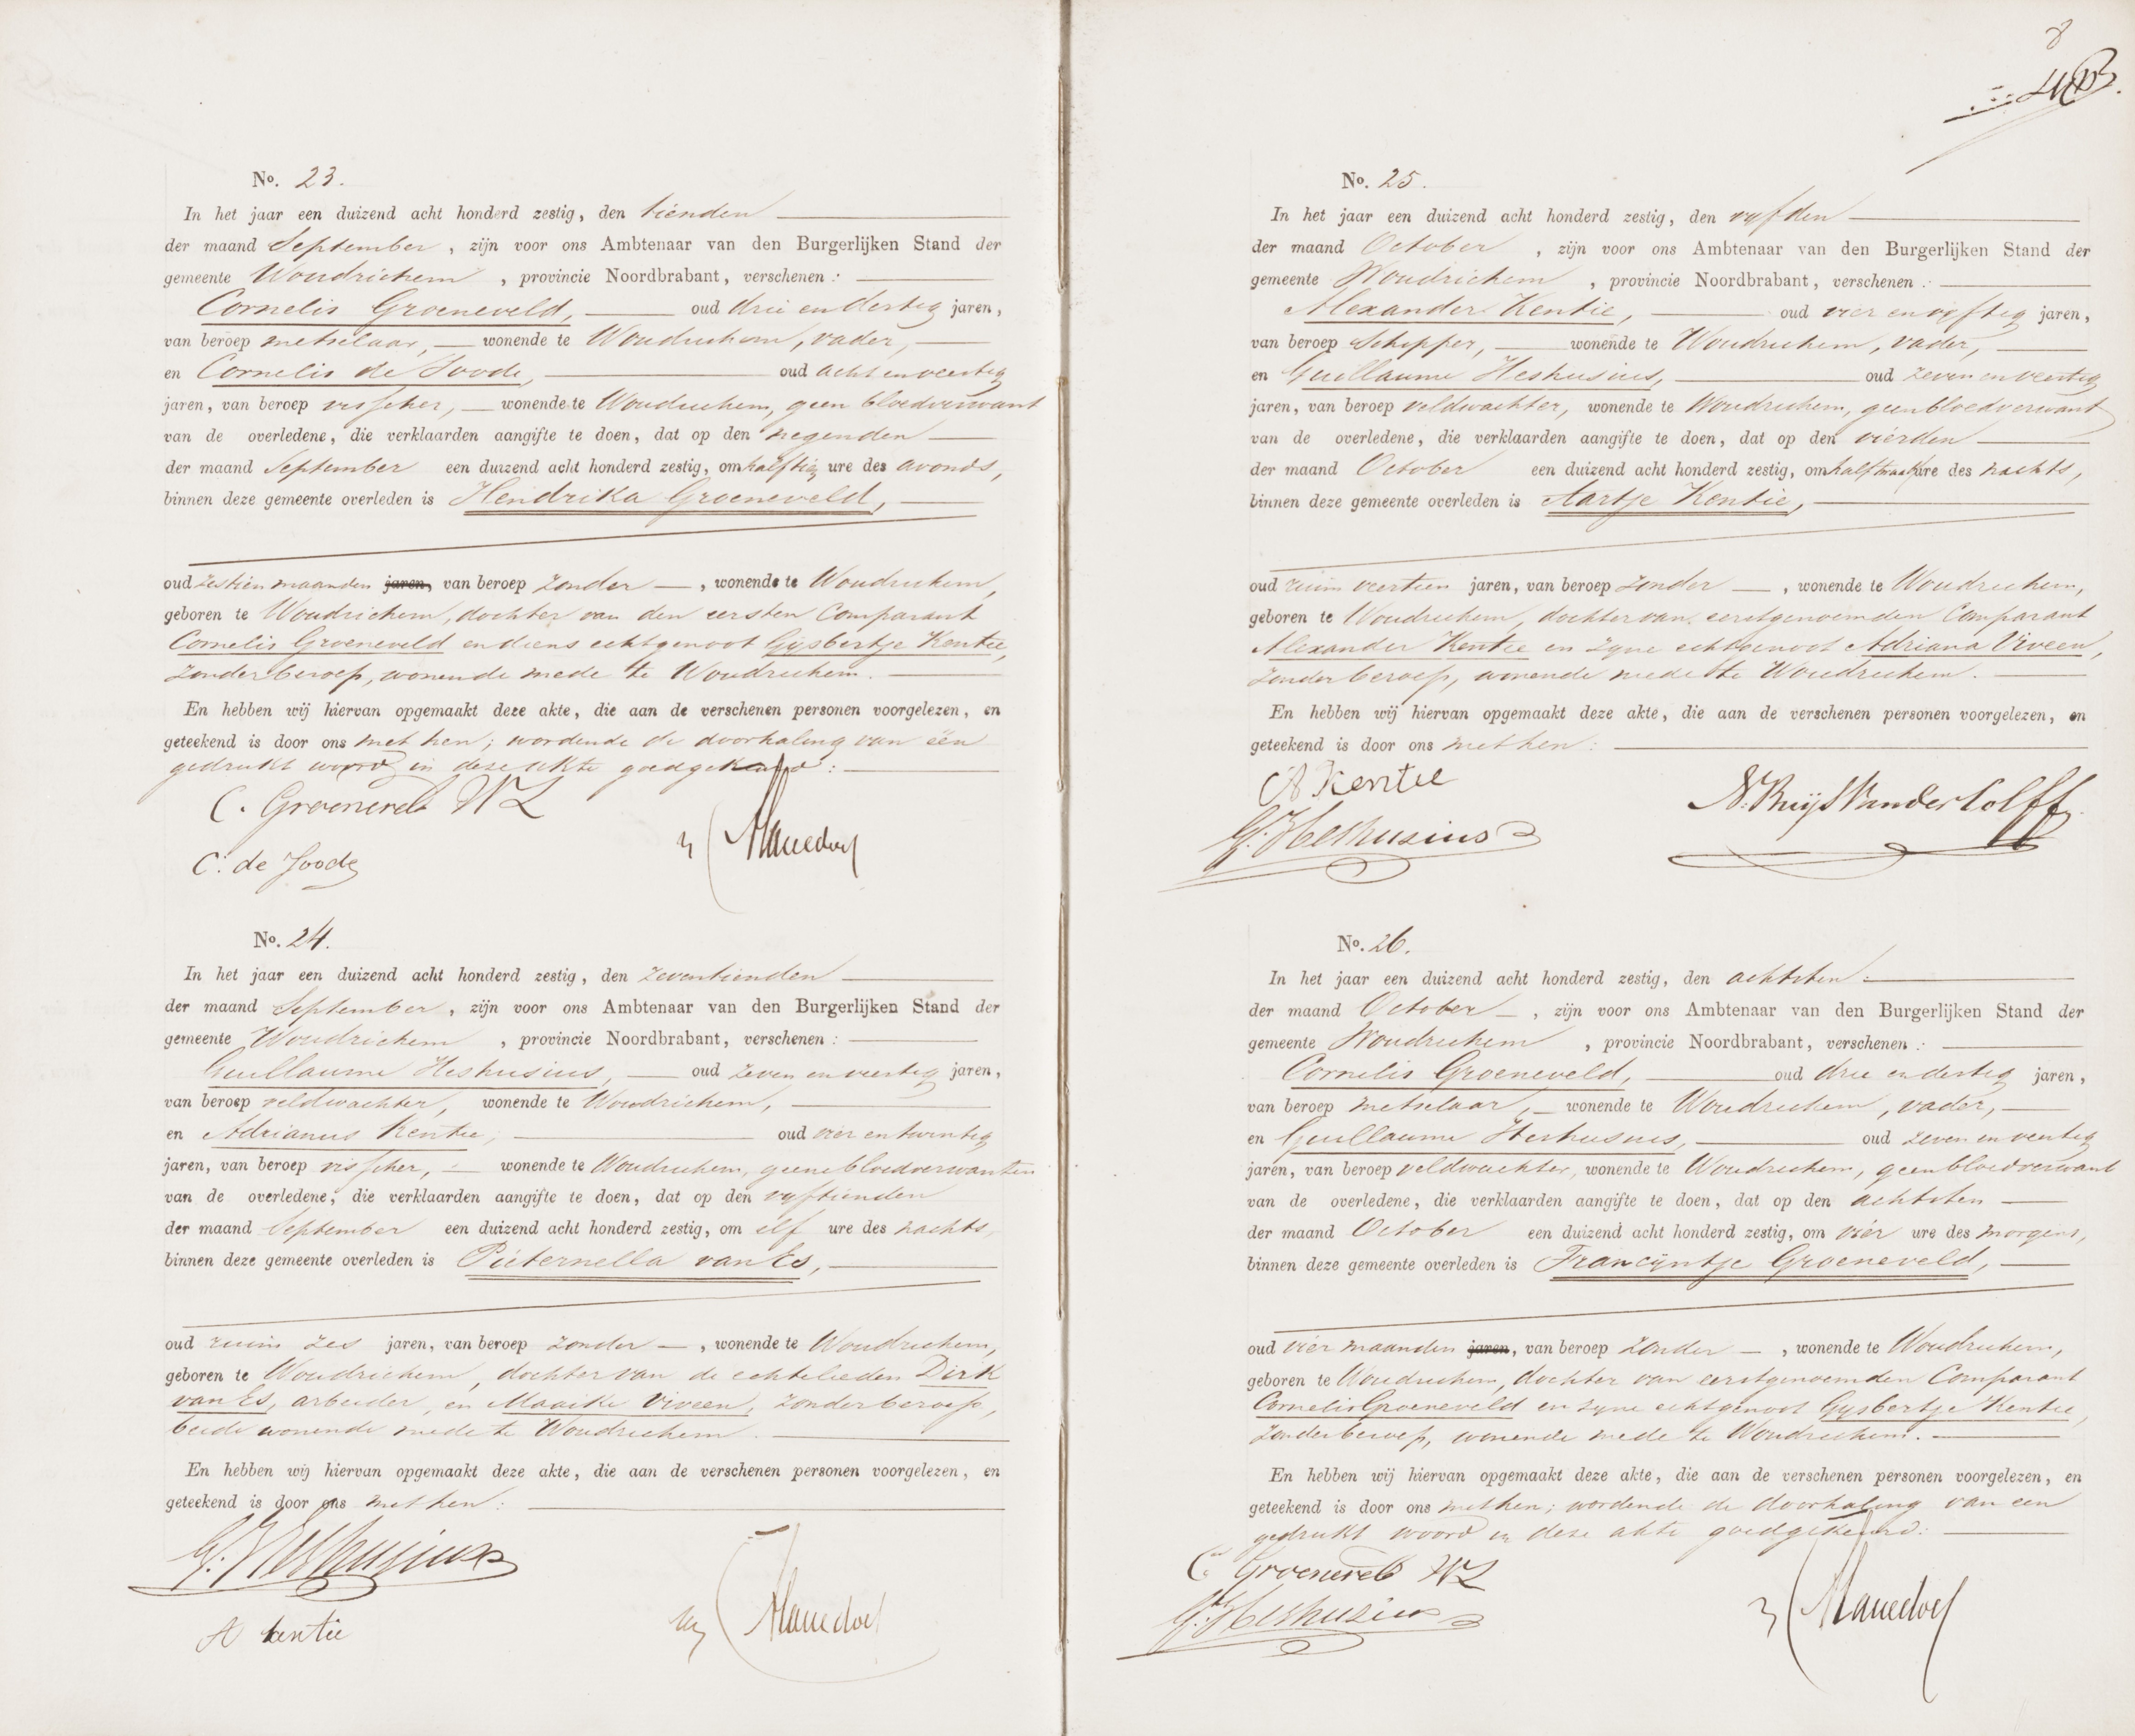 No. 23.
In het jaar een duizend acht honderd zestig, den tienden
der maand September, zijn voor ons Ambtenaar van den Burgerlijken Stand der
gemeente Woudrichem, provincie Noordbrabant, verschenen:
Cornelis Groeneveld, oud drie en dertig jaren,
van beroep metselaar, wonende te Woudrichem, vader,
en Cornelis de Joode, oud acht en veertig
jaren, van beroep visscher, wonende te Woudrichem, geen bloedverwant
van de overledene, die verklaarden aangifte te doen, dat op den negenden
der maand September een duizend acht honderd zestig, om half tien ure des avonds,
binnen deze gemeente overleden is Hendrika Groeneveld,
oud zestien maanden jaren, van beroep zonder, wonende te Woudrichem,
geboren te Woudrichem, dochter van den eersten Comparant
Cornelis Groeneveld en diens echtgenoot Gijsbertje Kentie,
zonder beroep, wonende mede te Woudrichem.
En hebben wij hiervan opgemaakt deze akte, die aan de verschenen personen voorgelezen, en
geteekend is door ons met hen; wordende de doorhaling van één
gedrukt woord in deze akte goedgekeurd:
C. Groeneveld WZ
C. de Joode
No. 24.
In het jaar een duizend acht honderd zestig, den zeventienden
der maand September, zijn voor ons Ambtenaar van den Burgerlijken Stand der
gemeente Woudrichem, provincie Noordbrabant, verschenen:
Guillaume Heshusius, oud zeven en veertig jaren,
van beroep veldwachter, wonende te Woudrichem,
en Adrianus Kentie, oud vier en twintig
jaren, van beroep visscher, wonende te Woudrichem, geene bloedverwanten
van de overledene, die verklaarden aangifte te doen, dat op den vyftienden
der maand September een duizend acht honderd zestig, om elf ure des nachts,
binnen deze gemeente overleden is Pieternella van Es,
oud ruim zes jaren, van beroep zonder, wonende te Woudrichem,
geboren te Woudrichem, dochter van de echtelieden Dirk
van Es, arbeider, en Maaike Viveen, zonder beroep,
beide wonende mede te Woudrichem.
En hebben wij hiervan opgemaakt deze akte, die aan de verschenen personen voorgelezen, en
geteekend is door ons met hen:
G. Heshusius
A Kentie
8
No. 25.
In het jaar een duizend acht honderd zestig, den vyfden
der maand October, zijn voor ons Ambtenaar van den Burgerlijken Stand der
gemeente Woudrichem, provincie Noordbrabant, verschenen:
Alexander Kentie, oud vier en vyftig jaren,
van beroep Schipper, wonende te Woudrichem, vader,
en Guillaume Heshusius, oud zeven en veertig
jaren, van beroep veldwachter, wonende te Woudrichem, geen bloedverwant
van de overledene, die verklaarden aangifte te doen, dat op den vierden
der maand October een duizend acht honderd zestig, om half twaalf ure des nachts,
binnen deze gemeente overleden is Aartje Kentie,
oud ruim veertien jaren, van beroep zonder, wonende te Woudrichem,
geboren te Woudrichem, dochter van eerstgenoemden Comparant
Alexander Kentie en zyne echtgenoot Adriana Viveen,
zonder beroep, wonende mede te Woudrichem.
En hebben wij hiervan opgemaakt deze akte, die aan de verschenen personen voorgelezen, en
geteekend is door ons met hen:
A Kentie
G. Heshusius
No. 26.
In het jaar een duizend acht honderd zestig, den achtsten
der maand October, zijn voor ons Ambtenaar van den Burgerlijken Stand der
gemeente Woudrichem, provincie Noordbrabant, verschenen:
Cornelis Groeneveld, oud drie en dertig jaren,
van beroep metselaar, wonende te Woudrichem, vader,
en Guillaume Heshusius, oud zeven en veertig
jaren, van beroep veldwachter, wonende te Woudrichem, geen bloedverwant
van de overledene, die verklaarden aangifte te doen, dat op den achtsten
der maand October een duizend acht honderd zestig, om vier ure des morgens,
binnen deze gemeente overleden is Francijntje Groeneveld,
oud vier maanden jaren, van beroep zonder, wonende te Woudrichem,
geboren te Woudrichem, dochter van eerstgenoemden Comparant
Cornelis Groeneveld en zyne echtgenoot Gysbertje Kentie,
zonder beroep, wonende mede te Woudrichem.
En hebben wij hiervan opgemaakt deze akte, die aan de verschenen personen voorgelezen, en
geteekend is door ons met hen; wordende de doorhaling van een
gedrukt woord in deze akte goedgekeurd:
C. Groeneveld WZ
G. Heshusius